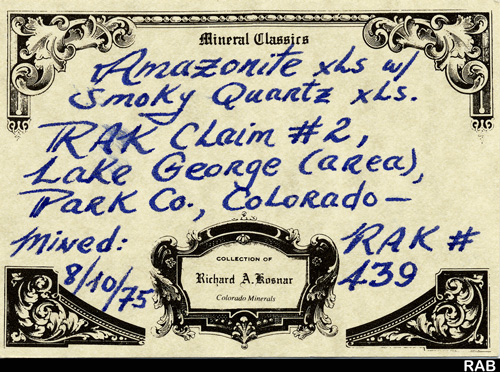 Mineral Classics
Amazonite xls w/
Smoky Quartz xls.
RAK Claim #2,
Lake George (area),
Park Co., Colorado —
Mined:
8/10/75
COLLECTION OF
Richard A. Kosnar
Colorado Minerals
RAK #
439
RAB